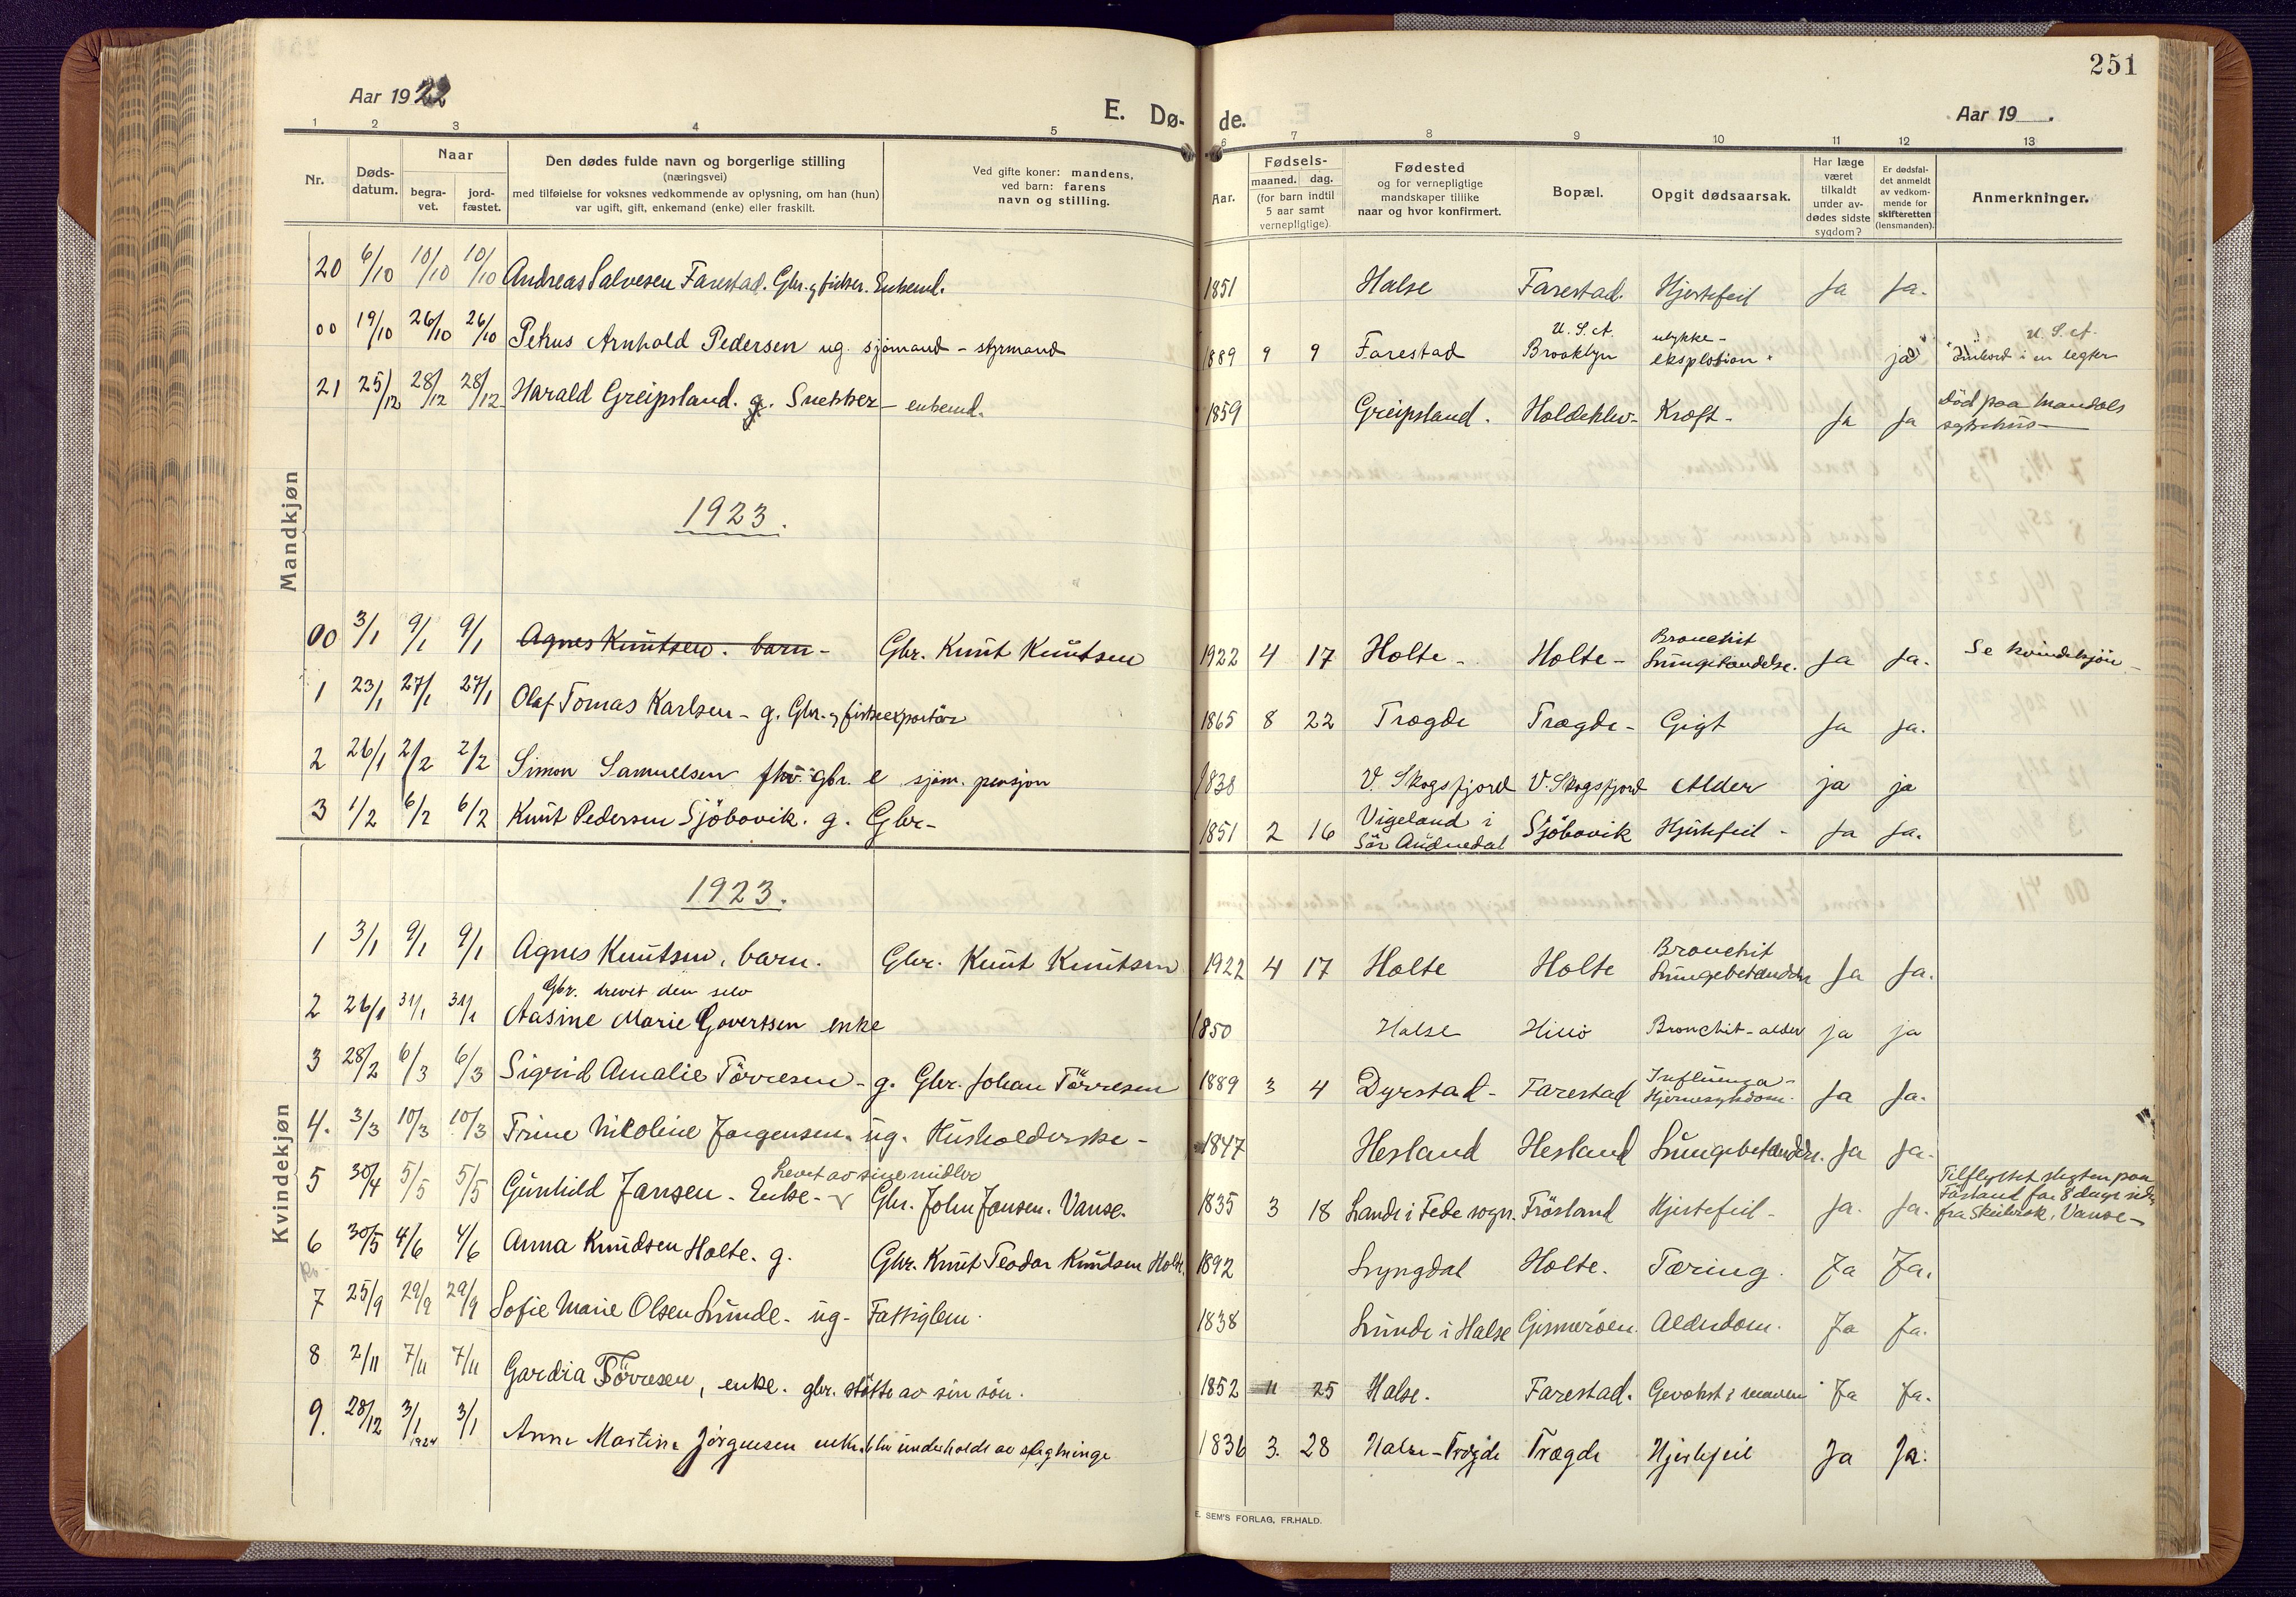 251
Aar 1922
E. Dø-
de.
Aar 19__.
1 2 3 4 5 6 7 8 9 10 11 12 13
Nr.
Døds-
datum.
Naar
begra-
vet.
jord-
fæstet.
Den dødes fulde navn og borgerlige stilling
(næringsvei)
med tilføielse for voksnes vedkommende av oplysning, om han (hun)
var ugift, gift, enkemand (enke) eller fraskilt.
Ved gifte koner: mandens,
ved barn: farens
navn og stilling.
Aar.
Fødsels-
maaned. dag.
(for barn indtil
5 aar samt
vernepligtige).
Fødested
og for vernepligtige
mandskaper tillike
naar og hvor konfirmert.
Bopæl.
Opgit dødsaarsak.
Har læge
været
tilkaldt
under av-
dødes sidste
sygdom?
Er dødsfal-
det anmeldt
av vedkom-
mende for
skifteretten
(lensmanden).
Anmerkninger.
Mandkjøn
20 6/10 10/10 10/10 Andreas Salvesen Farestad. Gbr. og fisker. Enkemd. 1851 Halse Farestad. Hjertefeil Ja Ja.
00 19/10 26/10 26/10 Petrus Arnhold Pedersen ug. sjömand - styrmand 1889 9 9 Farestad U.S.A. Brooklyn ulykke - eksplosion. ja U.S.A.
21 25/12 28/12 28/12 Harald Greipsland. g. Snekker - enkemd. 1859 Greipsland. Holdeklev- Kræft- Ja Ja Död paa Mandals
sykehus
1923.
00 3/1 9/1 9/1 Agnes Knutsen. barn- Gbr. Knut Knutsen 1922 4 17 Holte- Holte- Bronchit Lungebetændelse. Ja Ja. Se kvindekjön-
1 23/1 27/1 27/1 Olaf Tomas Karlsen - g. Gbr. og fiskeexportör 1865 8 22 Trægde Trægde- Gigt Ja Ja.
2 26/1 2/2 2/2 Simon Samuelsen fhv. gbr. e. sjöm. pensjon 1838 V. Skogsfjord V. Skogsfjord Alder ja ja
3 1/2 6/2 6/2 Knut Pedersen Sjöbovik. g. Gbr- 1851 2 16 Vigeland i Sör Audnedal Sjöbovik Hjertefeil - Ja Ja.
Kvindekjøn
1923.
1 3/1 9/1 9/1 Agnes Knutsen, barn. Gbr. Knut Knutsen 1922 4 17 Holte Holte Bronchit Lungebetændelse Ja Ja.
Gbr. drevet den selv
2 26/1 31/1 31/1 Aasine Marie Govertsen enke 1850 Halse Hillö Bronchit - alder ja ja
3 28/2 6/3 6/3 Sigrid Amalie Törresen - g. Gbr. Johan Törresen 1889 3 4 Dyrstad- Farestad Influenza - Hjernesykdom. Ja Ja.
4. 3/3 10/3 10/3 Trine Nikoline Jørgensen. ug. Husholderske - 1847 Hesland Hesland Lungebetændelse. Ja Ja.
Levet av sine midler
5 30/4 5/5 5/5 Gunhild Jansen - Enke - Gbr. John Jansen. Vanse. 1835 3 18 Lande i Fede sogn. Frösland Hjertefeil - Ja. Ja. Tilflyttet slegten paa
Frösland for 8 dage siden
fra Vanse-
6 30/5 4/6 4/6 Anna Knudsen Holte. g. Gbr. Knut Teodor Knudsen Holte. 1892 Lyngdal Holte. Tæring. Ja Ja.
7 25/9 29/9 29/9 Sofie Marie Olsen Lunde - ug - Fattiglem. 1838 Lunde i Halse Gismeröen. Alderdom. Ja Ja.
8 2/11 7/11 7/11 Gardia Törresen, enke. gbr. stötte av sin sön. 1852 11 25 Halse. Farestad. Gevækst i maven Ja Ja.
9. 28/12 3/1 1924 3/1 Anne Martine Jörgensen enke. blir underholdt av slegtninge 1836 3. 28 Halse - Trægde Trægde Hjertefeil Ja Ja.
E. SEM'S FORLAG, FR.HALD.